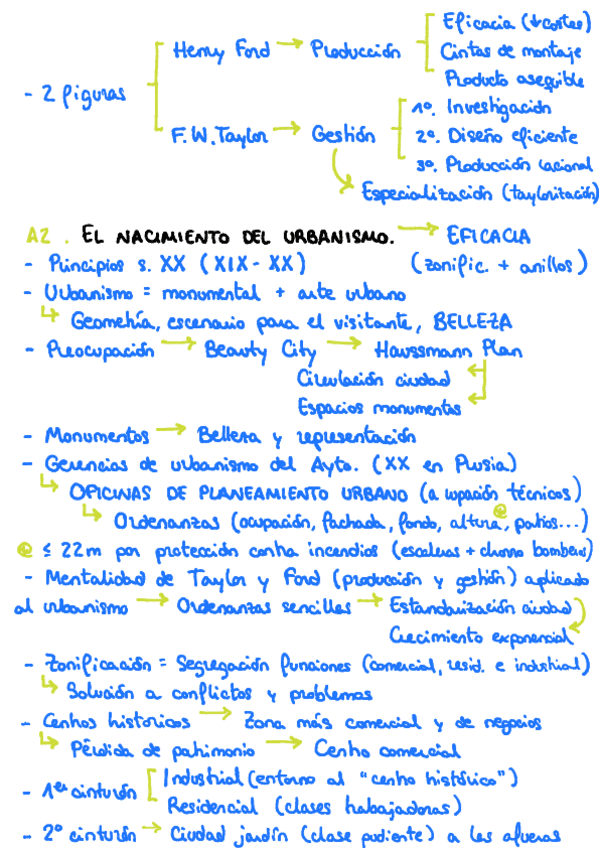 - 2 figuras
Henry Ford → Producción
Eficacia (↓costes)
Cintas de montaje
Producto asequible
F.W. Taylor → Gestión
1º. Investigación
2º. Diseño eficiente
3º. Producción racional
Especialización (taylorización)
A2. EL NACIMIENTO DEL URBANISMO. → EFICACIA
- Principios s. XX (XIX-XX) (zonific. + anillos)
- Urbanismo = monumental + arte urbano
↳ Geometría, escenario para el visitante, BELLEZA
- Preocupación → Beauty City → Haussmann Plan
Circulación ciudad
Espacios monumentos
- Monumentos → Belleza y representación
- Gerencias de urbanismo del Ayto. (XX en Prusia)
↳ OFICINAS DE PLANEAMIENTO URBANO (ocupación técnicos)
↳ Ordenanzas (ocupación, fachada, fondo, altura, patios...)
≤ 22m por protección contra incendios (escaleras + chorro bomberos)
- Mentalidad de Taylor y Ford (producción y gestión) aplicado
al urbanismo → Ordenanzas sencillas → Estandarización ciudad
Crecimiento exponencial
- Zonificación = Segregación funciones (comercial, resid. e industrial)
↳ Solución a conflictos y problemas
- Centros históricos → Zona más comercial y de negocios
↳ Pérdida de patrimonio → Centro comercial
- 1er cinturón
Industrial (entorno al "centro histórico")
Residencial (clases trabajadoras)
- 2º cinturón → Ciudad jardín (clase pudiente) a las afueras